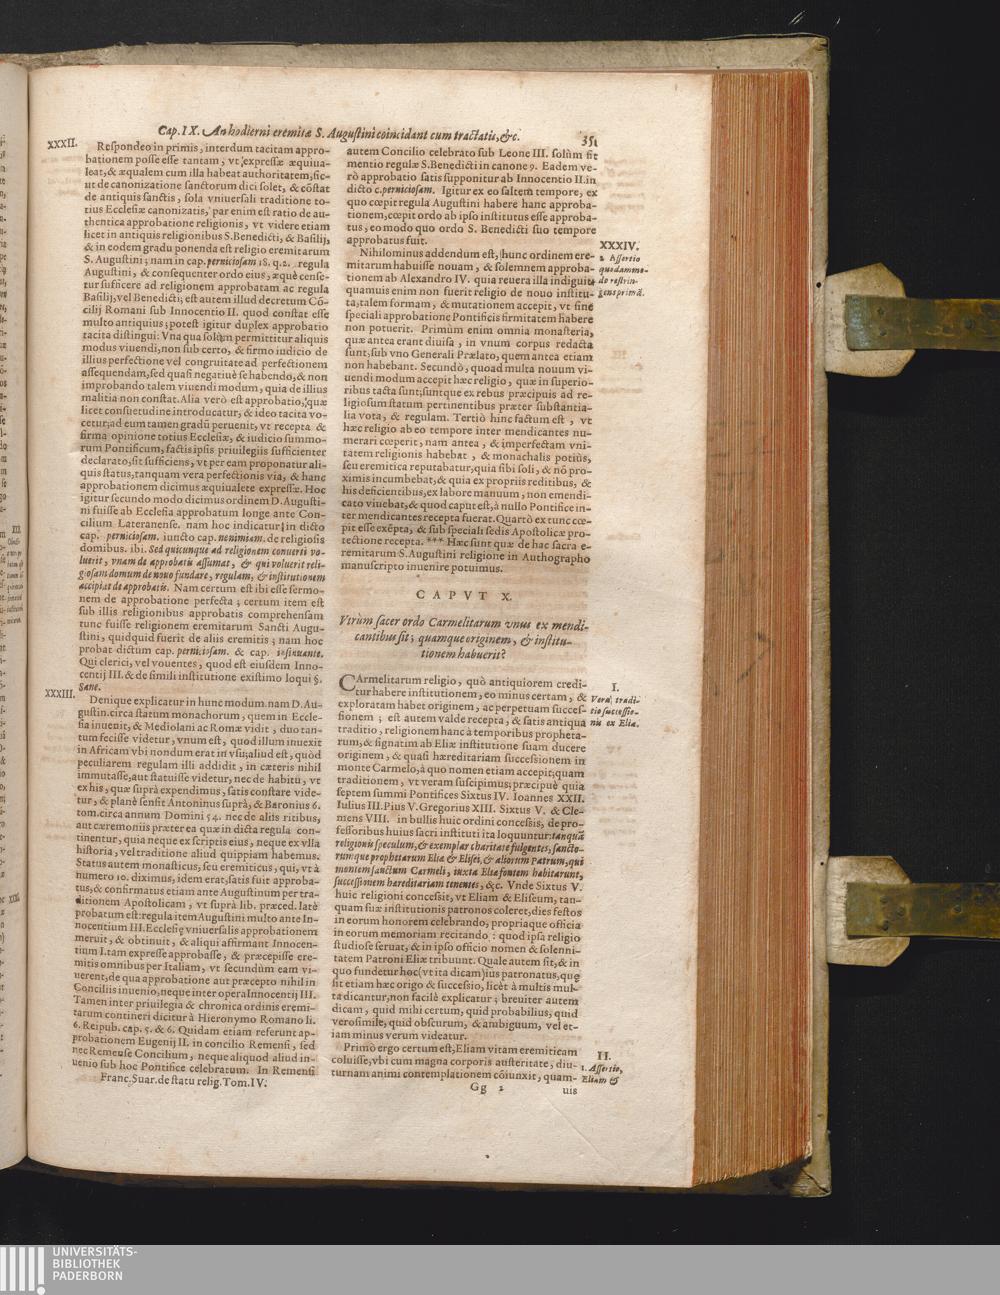 Cap. IX. An hodierni eremitæ S. Augustini coincidant cum tractatis, &c.
351
XXXII.
Respondeo in primis, interdum tacitam appro-
bationem posse esse tantam, vt expressæ æquiua-
leat, & æqualem cum illa habeat authoritatem, sic-
ut de canonizatione sanctorum dici solet, & cōstat
de antiquis sanctis, sola vniuersali traditione to-
tius Ecclesiæ canonizatis, par enim est ratio de au-
thentica approbatione religionis, vt videre etiam
licet in antiquis religionibus S. Benedicti, & Basilij,
& in eodem gradu ponenda est religio eremitarum
S. Augustini; nam in cap. perniciosam 18. q. 2. regula
Augustini, & consequenter ordo eius, æquè cense-
tur sufficere ad religionem approbatam ac regula
Basilij, vel Benedicti; est autem illud decretum Cō-
cilij Romani sub Innocentio II. quod constat esse
multo antiquius; potest igitur duplex approbatio
tacita distingui: Vna qua solùm permittitur aliquis
modus viuendi, non sub certo, & firmo iudicio de
illius perfectione vel congruitate ad perfectionem
assequendam, sed quasi negatiuè se habendo, & non
improbando talem viuendi modum, quia de illius
malitia non constat. Alia verò est approbatio, quæ
licet consuetudine introducatur, & ideo tacita vo-
cetur, ad eum tamen gradū peruenit, vt recepta &
firma opinione totius Ecclesiæ, & iudicio summo-
rum Pontificum, factis ipsis priuilegiis sufficienter
declarato, sit sufficiens, vt per eam proponatur ali-
quis status, tanquam vera perfectionis via, & hanc
approbationem dicimus æquiualete expressæ. Hoc
igitur secundo modo dicimus ordinem D. Augusti-
ni fuisse ab Ecclesia approbatum longe ante Con-
cilium Lateranense. nam hoc indicatur in dicto
cap. perniciosam. iuncto cap. nenimiam. de religiosis
domibus. ibi. Sed quicunque ad religionem conuerti vo-
luerit, vnam de approbatis assumat, & qui voluerit reli-
giosam domum de nouo fundare, regulam, & institutionem
accipiat de approbatis. Nam certum est ibi esse sermo-
nem de approbatione perfecta; certum item est
sub illis religionibus approbatis comprehensam
tunc fuisse religionem eremitarum Sancti Augu-
stini, quidquid fuerit de aliis eremitis; nam hoc
probat dictum cap. perniciosam. & cap. insinuante.
Qui clerici, vel vouentes, quod est eiusdem Inno-
centij III. & de simili institutione existimo loqui §.
Sane.
XXXIII.
Denique explicatur in hunc modum. nam D. Au-
gustin. circa statum monachorum, quem in Eccle-
sia inuenit, & Mediolani ac Romæ vidit, duo tan-
tum fecisse videtur, vnum est, quod illum inuexit
in Africam vbi nondum erat in vsu; aliud est, quòd
peculiarem regulam illi addidit, in cæteris nihil
immutasse, aut statuisse videtur, nec de habitu, vt
ex his, quæ suprà expendimus, satis constare vide-
tur, & planè sensit Antoninus suprà, & Baronius 6.
tom. circa annum Domini 54. nec de aliis ritibus,
aut cæremoniis præter ea quæ in dicta regula con-
tinentur, quia neque ex scriptis eius, neque ex vlla
historia, vel traditione aliud quippiam habemus.
Status autem monasticus, seu eremiticus, qui, vt à
numero 10. diximus, idem erat, satis fuit approba-
tus, & confirmatus etiam ante Augustinum per tra-
ditionem Apostolicam, vt suprà lib. præced. latè
probatum est: regula item Augustini multo ante In-
nocentium III. Ecclesię vniuersalis approbationem
meruit, & obtinuit, & aliqui affirmant Innocen-
tium I. tam expresse approbasse, & præcepisse ere-
mitis omnibus per Italiam, vt secundùm eam vi-
uerent, de qua approbatione aut præcepto nihil in
Conciliis inuenio, neque inter opera Innocentij III.
Tamen inter priuilegia & chronica ordinis eremi-
tarum contineri dicitur à Hieronymo Romano li.
6. Reipub. cap. 5. & 6. Quidam etiam referunt ap-
probationem Eugenij II. in concilio Remensi, sed
nec Remense Concilium, neque aliquod aliud in-
uenio sub hoc Pontifice celebratum. In Remensi
Franc. Suar. de statu relig. Tom. IV.
autem Concilio celebrato sub Leone III. solùm fit
mentio regulæ S. Benedicti in canone 9. Eadem ve-
rò approbatio satis supponitur ab Innocentio II. in
dicto c. perniciosam. Igitur ex eo saltem tempore, ex
quo cœpit regula Augustini habere hanc approba-
tionem, cœpit ordo ab ipso institutus esse approba-
tus, eo modo quo ordo S. Benedicti suo tempore
approbatus fuit.
XXXIV.
2. Assertio
quodammo-
do restrin-
gens primā.
Nihilominus addendum est, hunc ordinem ere-
mitarum habuisse nouam, & solemnem approba-
tionem ab Alexandro IV. quia reuera illa indiguit,
quamuis enim non fuerit religio de nouo institu-
ta, talem formam, & mutationem accepit, vt sine
speciali approbatione Pontificis firmitatem habere
non potuerit. Primùm enim omnia monasteria,
quæ antea erant diuisa, in vnum corpus redacta
sunt, sub vno Generali Prælato, quem antea etiam
non habebant. Secundò, quoad multa nouum vi-
uendi modum accepit hæc religio, quæ in superio-
ribus tacta sunt, suntque ex rebus præcipuis ad re-
ligiosum statum pertinentibus præter substantia-
lia vota, & regulam. Tertiò hinc factum est, vt
hæc religio ab eo tempore inter mendicantes nu-
merari cœperit, nam antea, & imperfectam vni-
tatem religionis habebat, & monachalis potiùs,
seu eremitica reputabatur, quia sibi soli, & nō pro-
ximis incumbebat, & quia ex propriis reditibus, &
his deficientibus, ex labore manuum, non emendi-
cato viuebat, & quod caput est, à nullo Pontifice in-
ter mendicantes recepta fuerat. Quartò ex tunc cœ-
pit esse exēpta, & sub speciali sedis Apostolicæ pro-
tectione recepta. *** Hæc sunt quæ de hac sacra e-
remitarum S. Augustini religione in Authographo
manuscripto inuenire potuimus.
CAPVT X.
Vtrùm sacer ordo Carmelitarum vnus ex mendi-
cantibus sit; quamque originem, & institu-
tionem habuerit?
I.
Vera traditio successio-
nis ex Elia.
CArmelitarum religio, quò antiquiorem credi-
tur habere institutionem, eo minus certam, &
exploratam habet originem, ac perpetuam succes-
sionem; est autem valde recepta, & satis antiqua
traditio, religionem hanc à temporibus propheta-
rum, & signatim ab Eliæ institutione suam ducere
originem, & quasi hæreditariam successionem in
monte Carmelo, à quo nomen etiam accepit; quam
traditionem, vt veram suscipimus; præcipuè quia
septem summi Pontifices Sixtus IV. Ioannes XXII.
Iulius III. Pius V. Gregorius XIII. Sixtus V. & Cle-
mens VIII. in bullis huic ordini concessis, de pro-
fessoribus huius sacri instituti ita loquuntur: tanquā
religionis speculum, & exemplar charitate fulgentes, sancto-
rumque prophetarum Eliæ & Elisei, & aliorum Patrum, qui
montem sanctum Carmeli, iuxta Eliæ fontem habitarunt,
successionem hæreditariam tenentes, &c. Vnde Sixtus V.
huic religioni concessit, vt Eliam & Eliseum, tan-
quam suæ institutionis patronos coleret, dies festos
in eorum honorem celebrando, propriaque officia
in eorum memoriam recitando: quod ipsa religio
studiose seruat, & in ipso officio nomen & solenni-
tatem Patroni Eliæ tribuunt. Quale autem sit, & in
quo fundetur hoc (vt ita dicam) ius patronatus, quę
sit etiam hæc origo & successio, licèt à multis mul-
ta dicantur, non facilè explicatur; breuiter autem
dicam, quid mihi certum, quid probabilius, quid
verosimile, quid obscurum, & ambiguum, vel et-
iam minus verum videatur.
II.
1. Assertio,
Eliam &
Primò ergo certum est, Eliam vitam eremiticam
coluisse, vbi cum magna corporis austeritate, diu-
turnam animi contemplationem cōiunxit, quam-
Gg 2
uis
UNIVERSITÄTS-
BIBLIOTHEK
PADERBORN